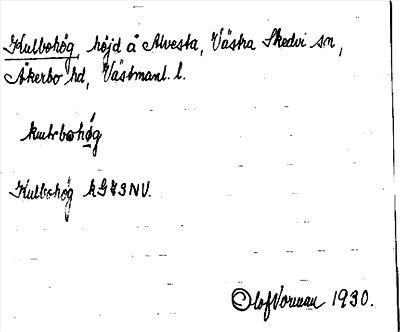 Kulbohög, höjd å Alvesta, Västra Skedvi sn,
Åkerbo hd, Västmanl. l.
kulbohög
Kulbohög kG83NV.
Olof Vorman 1930.